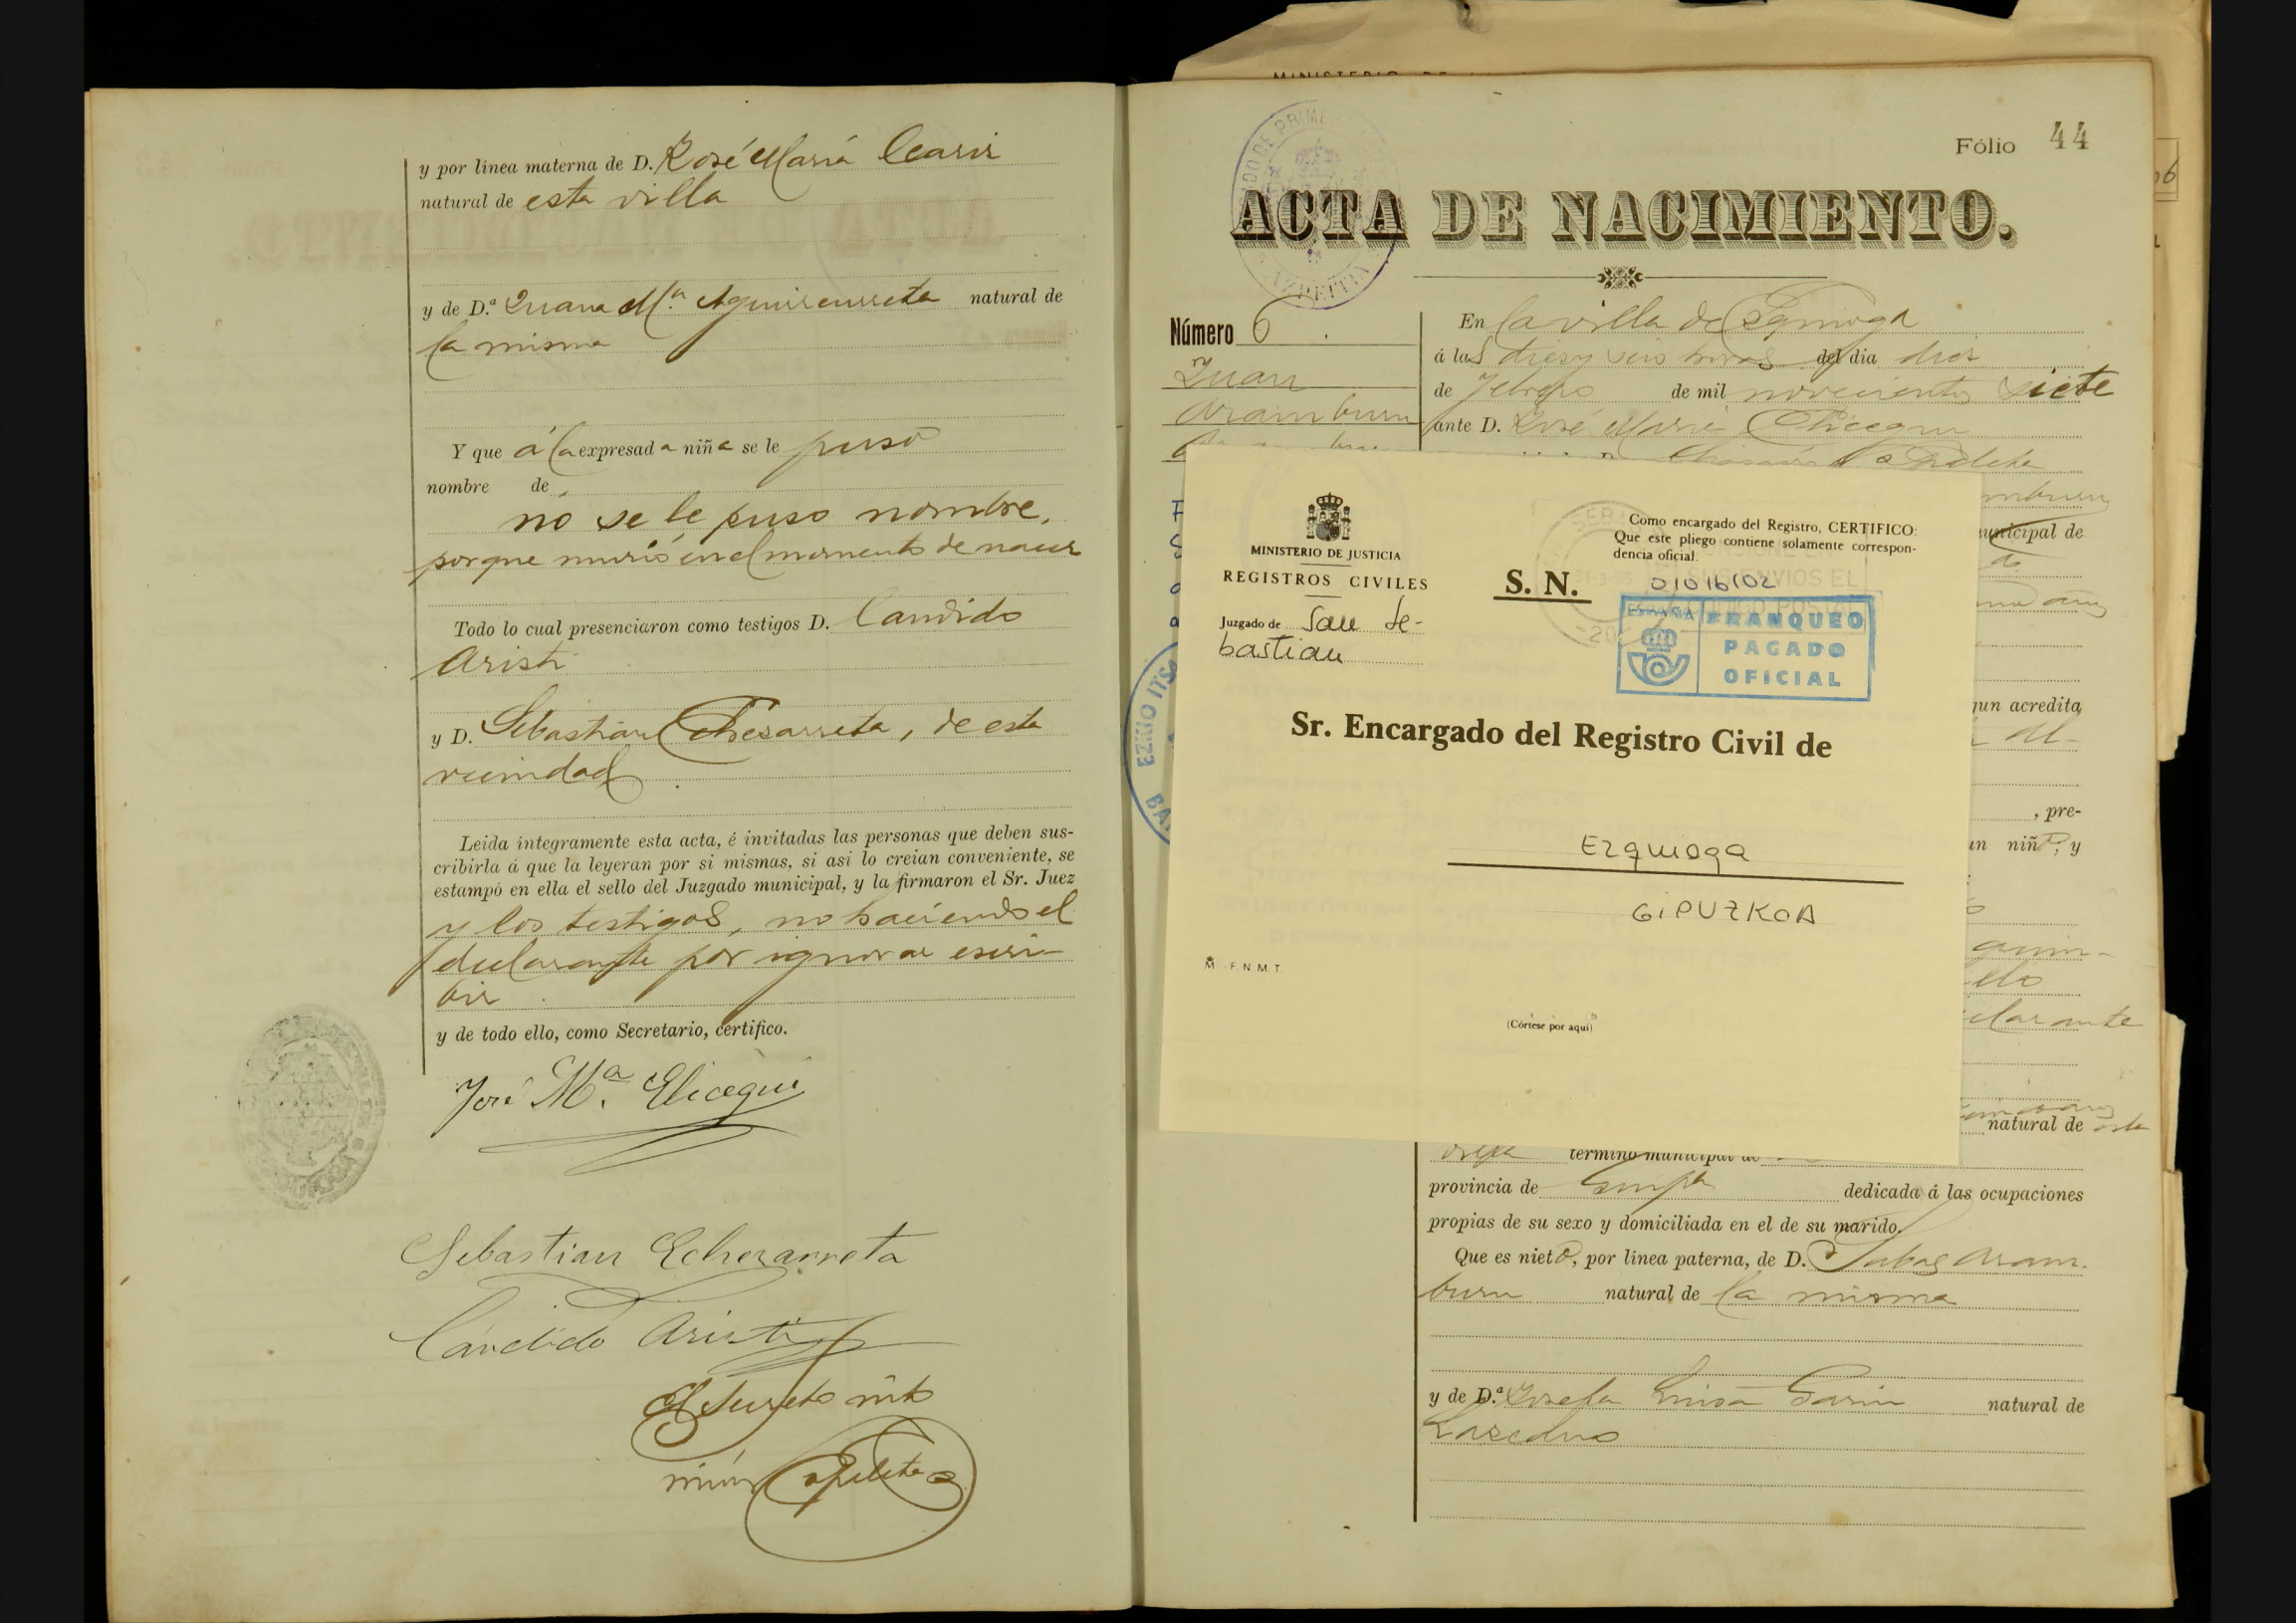 y por línea materna de D. José María
natural de esta villa
y de D.ª Juana M.ª Aguirreurreta natural de
la misma
Y que á la expresada niña se le puso
nombre de
no se le puso nombre,
porque murió en el momento de nacer
Todo lo cual presenciaron como testigos D. Candido
Aristi
y D. Sebastian Echezarreta, de esta
vecindad
Leida íntegramente esta acta, é invitadas las personas que deben sus-
cribirla á que la leyeran por si mismas, si asi lo creian conveniente, se
estampó en ella el sello del Juzgado municipal, y la firmaron el Sr. Juez
y los testigos, no haciendo el
declarante por ignorar escri-
bir
y de todo ello, como Secretario, certifico.
José M.ª Elicegui
Sebastian Echezarreta
Cándido Aristi
MINISTERIO DE
Fólio 44
ACTA DE NACIMIENTO.
Número 6
Juan
Aramburu
En la villa de Ezquioga
á las diez y seis horas del dia diez
de Febrero de mil novecientos siete
ante D. José María Elicegui
MINISTERIO DE JUSTICIA
REGISTROS CIVILES
Juzgado de San Se-
bastian
S. N.
Como encargado del Registro, CERTIFICO:
Que este pliego contiene solamente correspon-
dencia oficial.
01016102
ESPAÑA FRANQUEO
PAGADO
OFICIAL
Sr. Encargado del Registro Civil de
Ezquioga
GIPUZKOA
F. N. M. T.
(Córtese por aquí)
municipal de
gun acredita
, pre-
un niño, y
clarante
natural de
término municipal de
provincia de dedicada á las ocupaciones
propias de su sexo y domiciliada en el de su marido.
Que es nieto, por línea paterna, de D. Sabas Aram-
buru natural de la misma
y de D.ª Josefa Luisa Garin natural de
Lazcano